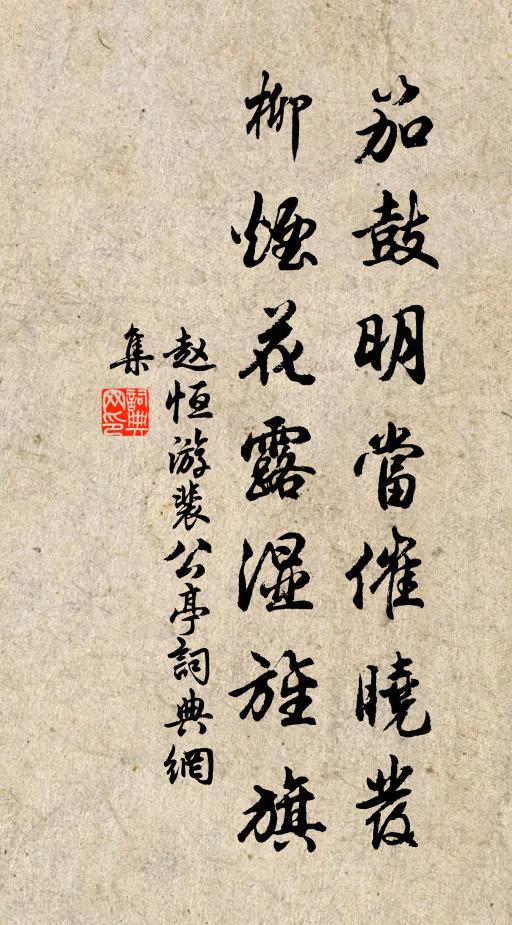 笳鼓明當催曉發
柳煙花露濕旌旗
赵恒游裴公亭詞典網
集
詞典
网印